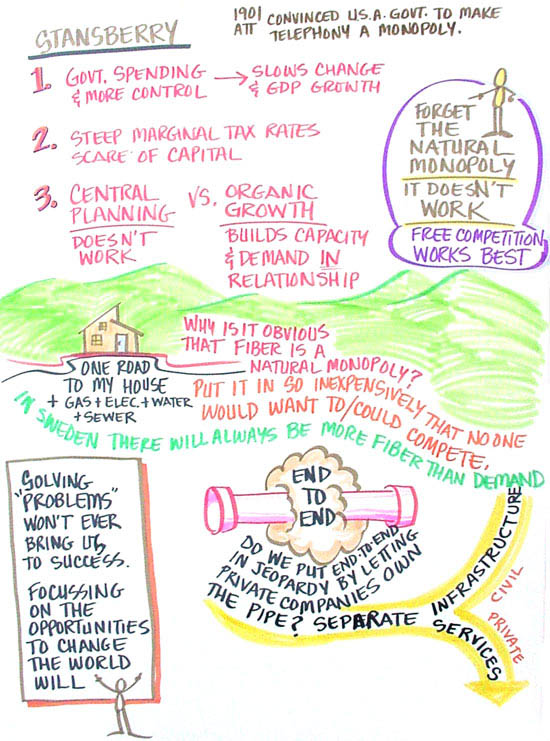 STANSBERRY
1901 CONVINCED U.S.A. GOVT. TO MAKE
ATT TELEPHONY A MONOPOLY.
1. GOVT. SPENDING → SLOWS CHANGE
& MORE CONTROL & GDP GROWTH
2. STEEP MARGINAL TAX RATES
SCARE OF CAPITAL
3. CENTRAL PLANNING
DOESN'T
WORK
VS. ORGANIC
GROWTH
BUILDS CAPACITY
& DEMAND IN
RELATIONSHIP
FORGET
THE
NATURAL
MONOPOLY
IT DOESN'T
WORK
FREE COMPETITION
WORKS BEST
WHY IS IT OBVIOUS
THAT FIBER IS A
NATURAL MONOPOLY?
ONE ROAD
TO MY HOUSE
+ GAS + ELEC. + WATER
+ SEWER
PUT IT IN SO INEXPENSIVELY THAT NO ONE
WOULD WANT TO/COULD COMPETE.
IN SWEDEN THERE WILL ALWAYS BE MORE FIBER THAN DEMAND
SOLVING
"PROBLEMS"
WON'T EVER
BRING US
TO SUCCESS.
FOCUSSING
ON THE
OPPORTUNITIES
TO CHANGE
THE WORLD
WILL
END
TO
END
DO WE PUT END-TO-END
IN JEOPARDY BY LETTING
PRIVATE COMPANIES OWN
THE PIPE? SEPARATE
INFRASTRUCTURE
CIVIL
PRIVATE
SERVICES